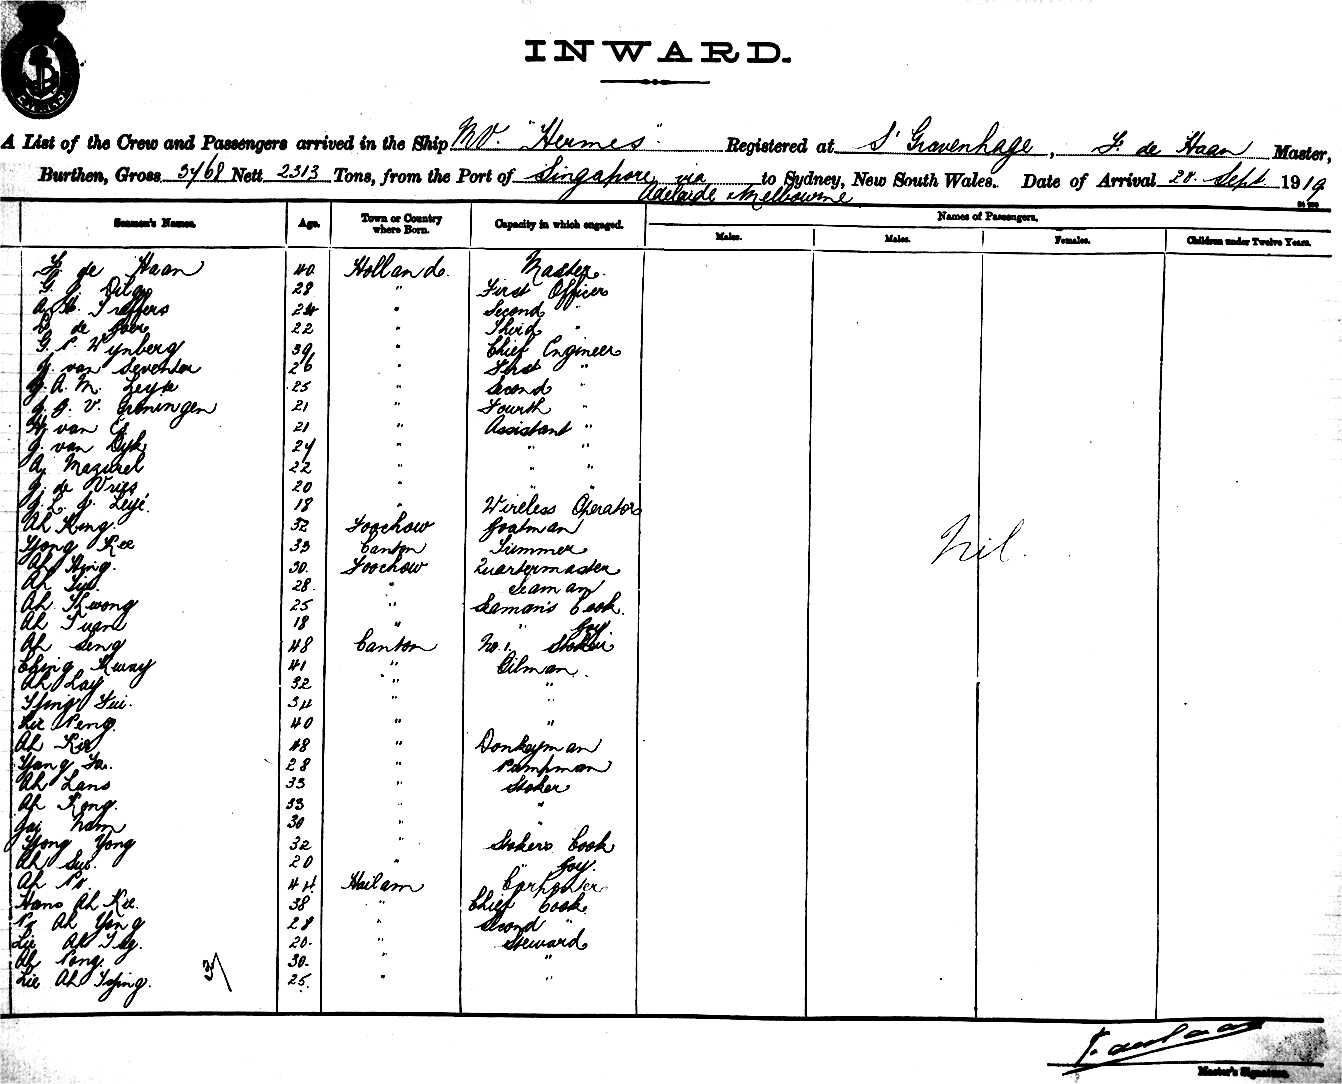 INWARD.
A List of the Crew and Passengers arrived in the Ship MV. "Hermes" Registered at S' Gravenhage, F. de Haan Master,
Burthen, Gross 3768 Nett 2313 Tons, from the Port of Singapore via to Sydney, New South Wales. Date of Arrival 20. Sept. 1919
Adelaide & Melbourne
Seamen's Names. Age. Town or Country where Born. Capacity in which engaged. Names of Passengers.
Males. Males. Females. Children under Twelve Years.
F. de Haan 40 Holland. Master.
28 " First Officer
A. H. Treffers 24 " Second "
de 22 " Third "
G. P. Wynberg 39 " Chief Engineer
J. van Deventer 26 " First "
A. M. 25 " Second "
V. Groningen 21 " Fourth "
van 21 " Assistant "
J. van Dyk 24 " " "
A. Mazurel 22 " " "
J. de Vries 20 " " "
18 " Wireless Operator
Ah Kong. 32 Foochow Boatman
Yong Kee 33 Canton
Ah Hing. 30. Foochow Quartermaster
Ah 28. " Seaman
Ah Kwong 25 " Seaman's Cook.
Ah Tuan 18 " " Boy
Ah Seng 48 Canton No. 1. Stoker
Ching Kway 41 " Oilman.
Ah Lay 32 " "
Tsing Fui. 34 " "
Lie Peng. 40 " "
Ah Kie 48 " Donkeyman
28 " Pumpman
Ah Lans 33 " Stoker
Ah Kong. 33 " "
Nam 30 " "
Yong 32 " Stoker's Cook
Ah Sui. 20 " " Boy.
Ah 44 Hailam Carpenter
Hans Ah Kee. 38 " Chief Cook.
Ah Yong 28 " Second "
Lie Ah 20. " Steward
Ah Pong. 30. " "
Lie Ah Tsing. 25. " "
Nil.
F. de Haan
Master's Signature.